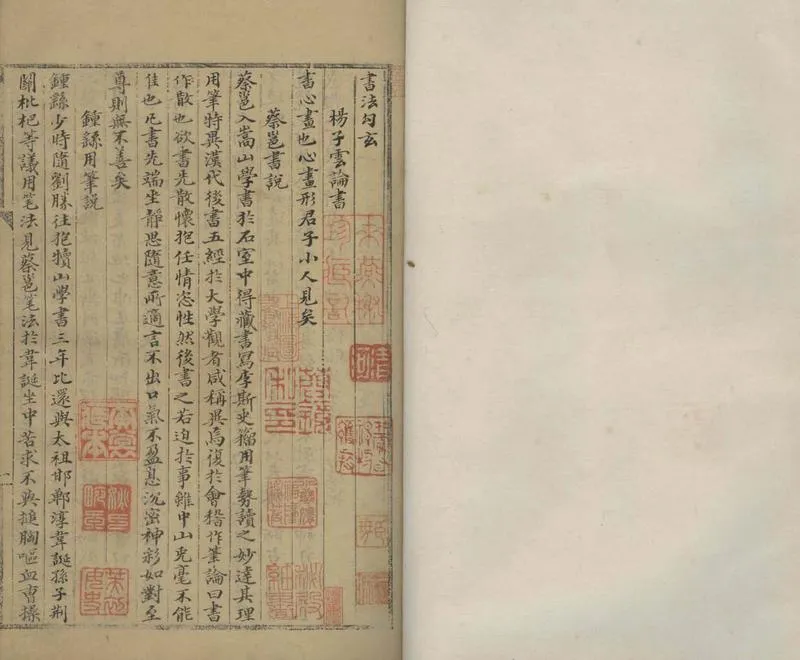 書法勾玄
楊子雲論書
書心畫也心畫形君子小人見矣
蔡邕書說
蔡邕入嵩山學書於石室中得藏書寫李斯史籀用筆勢讀之妙達其理
用筆特異漢代後書五經於大學觀者咸稱異焉復於會稽作筆論曰書
作散也欲書先散懷抱任情恣性然後書之若迫於事雖中山兎毫不能
佳也凡書先端坐靜思隨意所適言不出口氣不盈息沉密神彩如對至
尊則無不善矣
鍾繇用筆說
鍾繇少時隨劉勝往抱犢山學書三年比還與太祖邯鄲淳韋誕孫子荆
關枇杷等議用筆法見蔡邕筆法於韋誕坐中苦求不與搥胸嘔血曹操